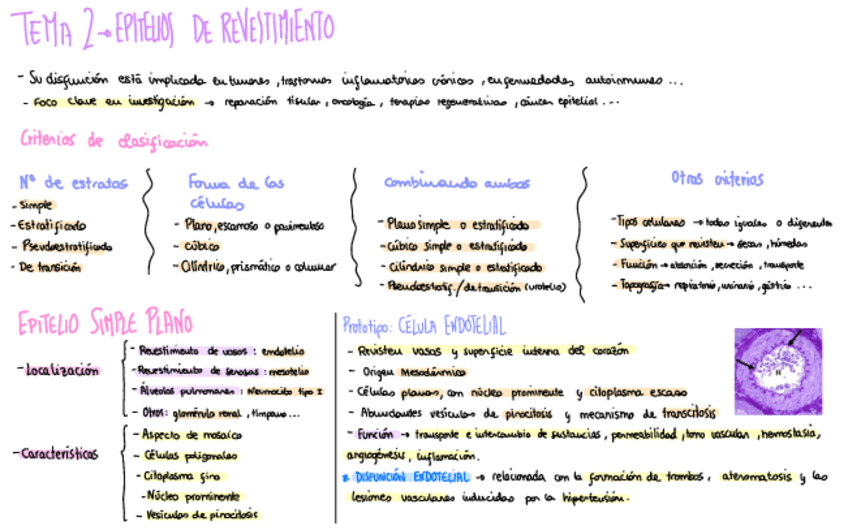 TEMA 2 → EPITELIOS DE REVESTIMIENTO
- Su disfunción está implicada en tumores, trastornos inflamatorios crónicos, enfermedades autoinmunes ...
- Foco clave en investigación → reparación tisular, oncología, terapias regenerativas, cáncer epitelial ...
Criterios de clasificación
Nº de estratos
- Simple
- Estratificado
- Pseudoestratificado
- De transición
Forma de las
células
- Plano, escamoso o pavimentoso
- Cúbico
- Cilíndrico, prismático o columnar
Combinando ambos
- Plano simple o estratificado
- Cúbico simple o estratificado
- Cilíndrico simple o estratificado
- Pseudoestratif./de transición (urotelio)
Otros criterios
- Tipos celulares → todas iguales o diferentes
- Superficies que revisten → secas, húmedas
- Función → absorción, secreción, transporte
- Topografía → respiratorio, urinario, gástrico ...
EPITELIO SIMPLE PLANO
- Localización
- Revestimiento de vasos: endotelio
- Revestimiento de serosas: mesotelio
- Álveolos pulmonares: Neumocito tipo I
- Otros: glomérulo renal, tímpano...
- Características
- Aspecto de mosaico
- Células poligonales
- Citoplasma fino
- Núcleo prominente
- Vesículas de pinocitosis
Prototipo: CÉLULA ENDOTELIAL
- Revisten vasos y superficie interna del corazón
- Origen Mesodérmico
- Células planas, con núcleo prominente y citoplasma escaso
- Abundantes vesículas de pinocitosis y mecanismo de transcitosis
- Función → transporte e intercambio de sustancias, permeabilidad, tono vascular, hemostasia,
angiogénesis, inflamación.
* DISFUNCIÓN ENDOTELIAL → relacionada con la formación de trombos, ateromatosis y las
lesiones vasculares inducidas por la hipertensión.
H